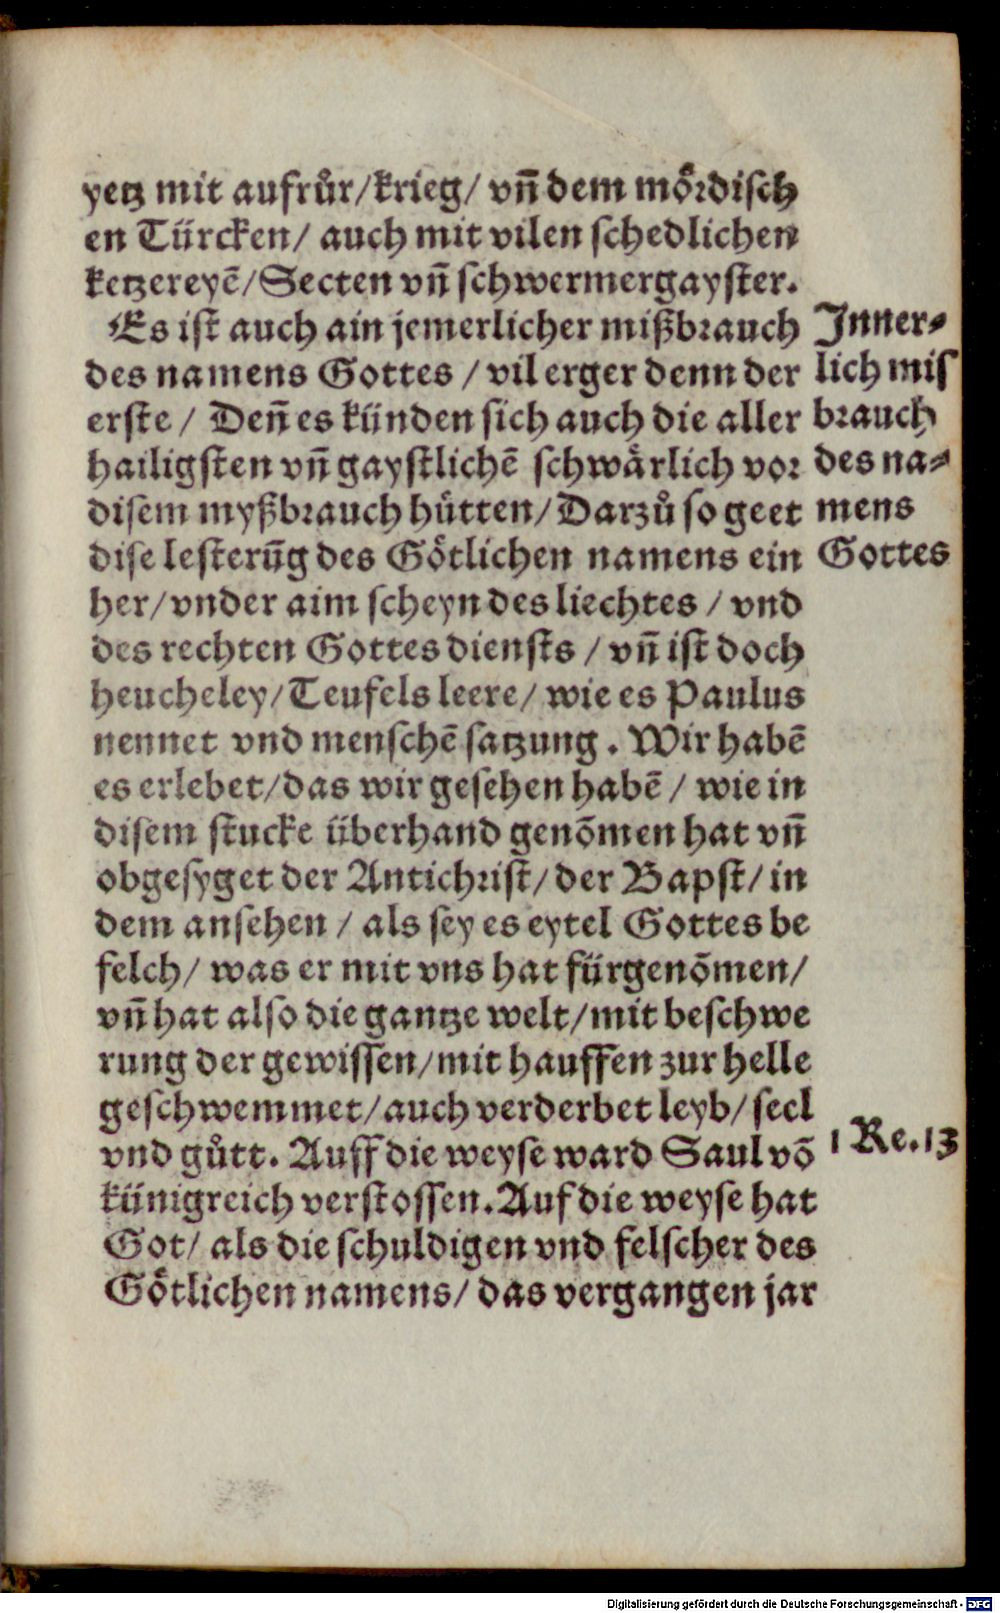 yetz mit aufrůr/krieg/ vñ dem moͤrdisch
en Türcken/ auch mit vilen schedlichen
ketzereyẽ/Secten vñ schwermergayster.
Es ist auch ain jemerlicher mißbrauch
des namens Gottes / vil erger denn der
erste / Deñ es künden sich auch die aller
hailigsten vñ gaystlichẽ schwaͤrlich vor
disem myßbrauch huͤtten/Darzů so geet
dise lesterũg des Goͤtlichen namens ein
her/vnder aim scheyn des liechtes / vnd
des rechten Gottes diensts / vñ ist doch
heucheley/Teufels leere/ wie es Paulus
nennet vnd menschẽ satzung. Wir habẽ
es erlebet/das wir gesehen habẽ / wie in
disem stucke überhand genõmen hat vñ
obgesyget der Antichrist/der Bapst/in
dem ansehen / als sey es eytel Gottes be
felch/ was er mit vns hat fürgenõmen/
vñ hat also die gantze welt/mit beschwe
rung der gewissen/mit hauffen zur helle
geschwemmet/auch verderbet leyb/seel
vnd guͤtt. Auff die weyse ward Saul võ
künigreich verstossen.Auf die weyse hat
Got/ als die schuldigen vnd felscher des
Goͤtlichen namens/ das vergangen jar
Jnner⸗
lich mis
brauch
des na⸗
mens
Gottes
1 Re.13
Digitalisierung gefördert durch die Deutsche Forschungsgemeinschaft - DFG